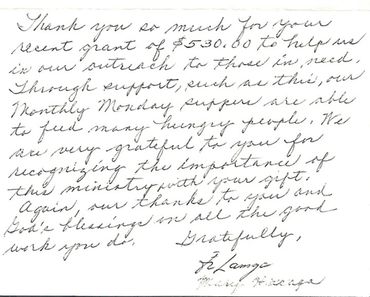 Thank you so much for your
recent grant of $530.00 to help us
in our outreach to those in need.
Through support, such as this, our
Monthly Monday suppers are able
to feed many hungry people. We
are very grateful to you for
recognizing the importance of
this ministry with your gift.
Again, our thanks to you and
God's blessings on all the good
work you do. Gratefully,
Mary